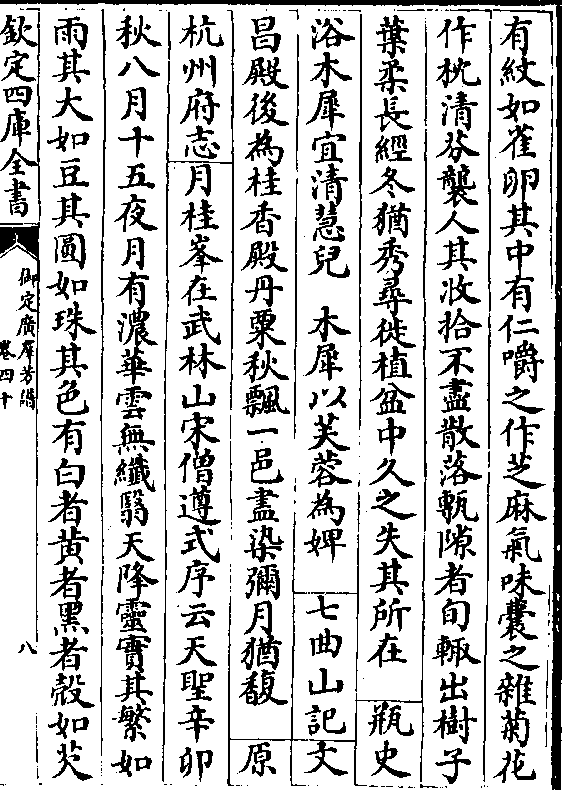 有紋如雀卵其中有仁嚼之作芝麻氣味囊之雜菊花
作枕清芬襲人其收拾不盡散落甎隙者旬輒出樹子
葉柔長經冬猶秀尋徙植盆中久之失其所在　瓶史
浴木犀宜清慧兒　木犀以芙蓉為婢　七曲山記文
昌殿後為桂香殿丹粟秋飄一邑盡染彌月猶馥　原
杭州府志月桂峯在武林山宋僧遵式序云天聖辛卯
秋八月十五夜月有濃華雲無纖翳天降靈實其繁如
雨其大如豆其圓如珠其色有白者黄者黑者殼如芡
欽定四庫全書
御定廣羣芳譜
卷四十
八